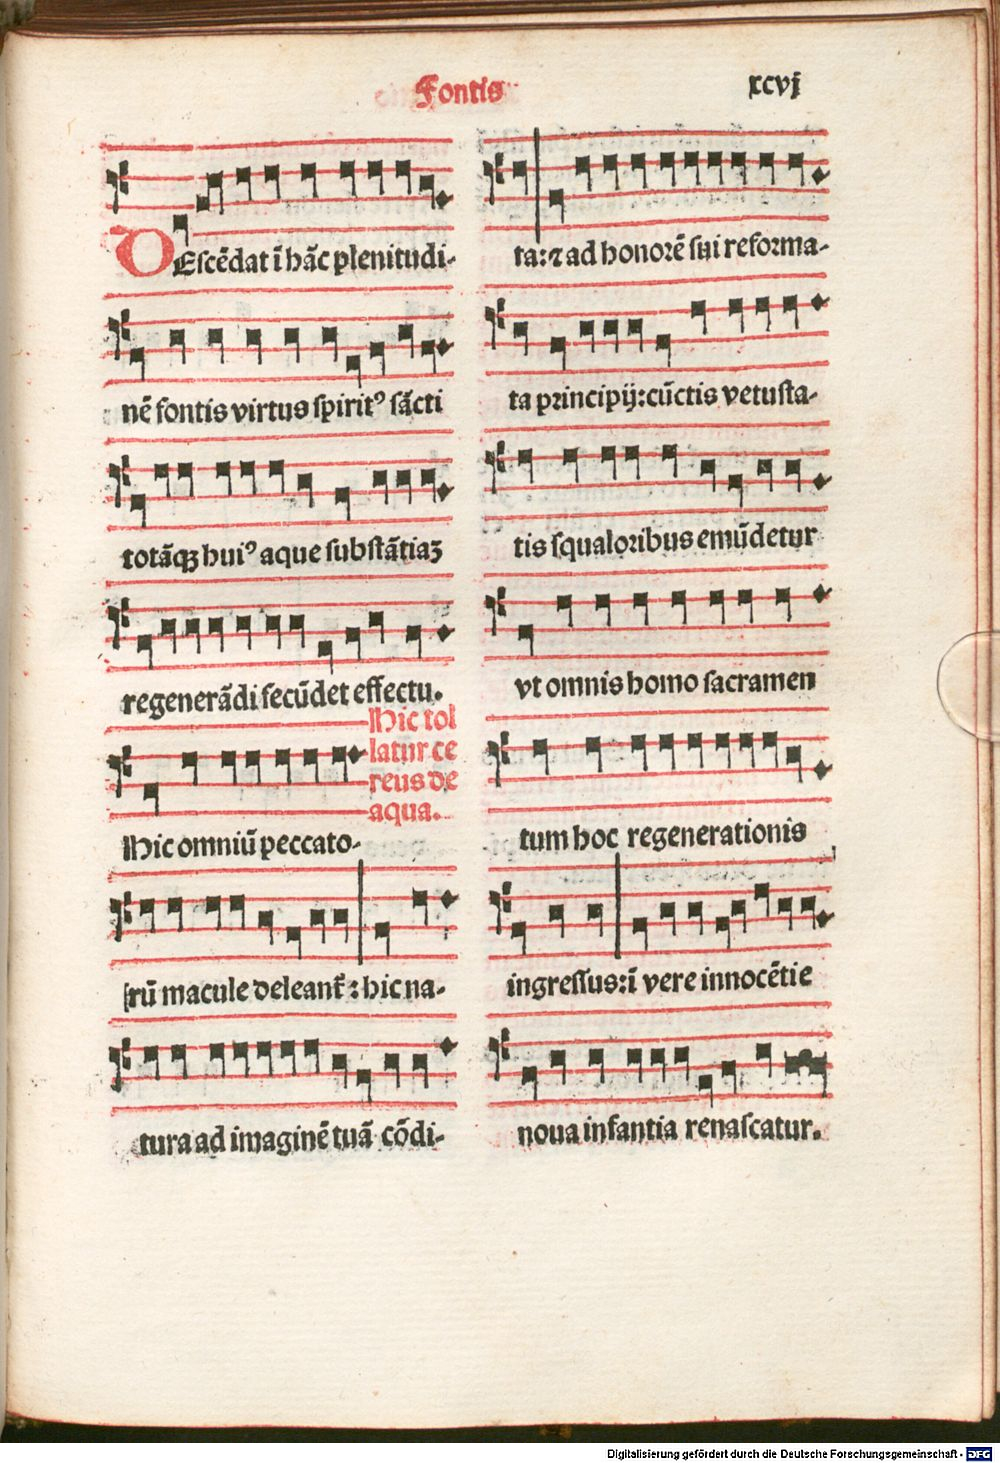 Fontis
xcvj
DEſcēdat ī hāc plenitudi-
nē fontis virtus ſpiritꝰ ſācti
totāqꝫ huiꝰ aque ſubſtātiaꝫ
regenerādi fecūdet effectu.
Hic tol
latur ce
reus de
aqua.
Hic omniū peccato-
rū macule deleant᷑: hic na-
tura ad imaginē tuā cōdi-
ta: ⁊ ad honorē ſui reforma-
ta principij: cūctis vetuſta-
tis ſqualoribus emūdetur
vt omnis homo ſacramen
tum hoc regenerationis
ingreſſus: ī vere innocētie
noua infantia renaſcatur.
Digitalisierung gefördert durch die Deutsche Forschungsgemeinschaft - DFG